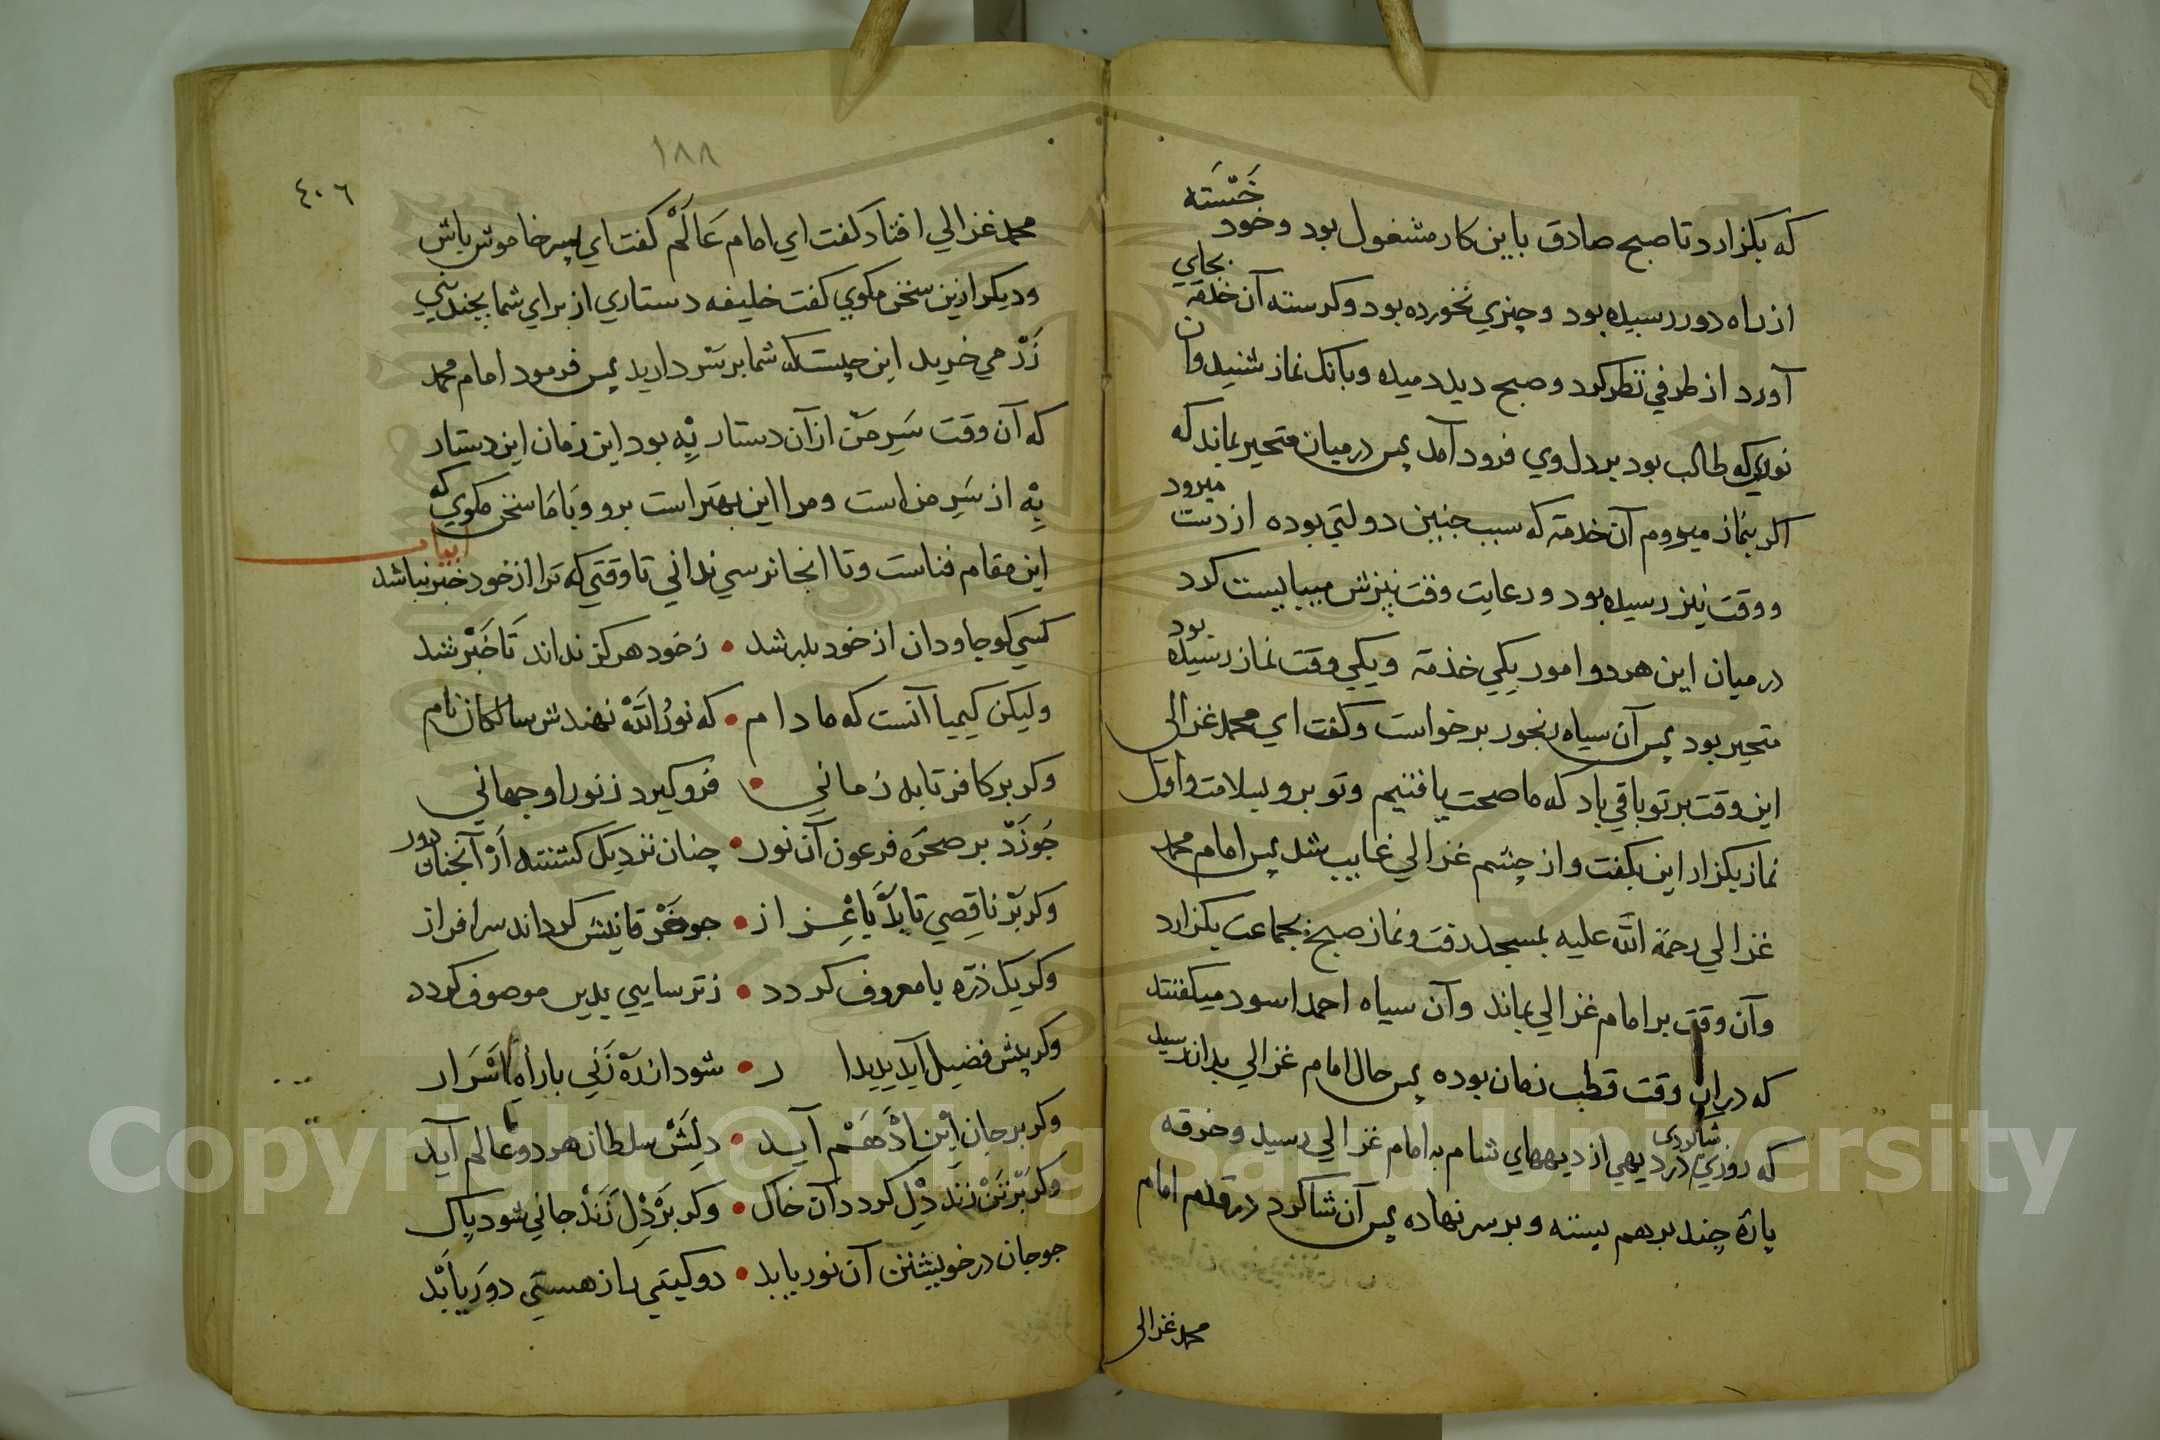 که بکزارد تا صبح صادق باین کار مشغول بود و خود خَسْتَه
از راه دور رسیده بود و چیزي نخورده بود و کرسنه آن خدمة بجاي
آورد از طرفي نظر کرد و صبح دید دمیده و بانك نماز شنید و آن
نوري که طالب بود بر دل وي فرود آمد پس درمیان متحیر بماند که
اکر بنماز میروم آن خدمة که سبب چنین دولتي بوده از دست میرود
و وقت نیز رسیده بود و رعایت وقت نیزش میبایست کرد
درمیان این هر دو امور یکي خذمة و یکي وقت نماز رسیده بود
متحیر بود پس آن سیاه رنجور برخواست و کفت اي محمد غزالی
این وقت بر تو باقي باد که ما صحت یافتیم و تو برو بسلامت و اول
نماز بکزار این بکفت و از چشم غزالي غایب شد پس امام محمد
غزالي رحمة الله علیه بمسجد رفت و نماز صبح بجماعت بکزارد
و آن وقت بر امام غزالي بماند و آن سیاه احمد اسود میکفتند
که در آن وقت قطب زمان بوده پس حال امام غزالي بدان رسید
که روزي شاکردی در دیهي از دیههاي شام به امام غزالي رسید و خرقه
پارۀ چند برهم بسته و بر سر نهاده پس آن شاکرد در قدم امام
محمد غزالی
١٨٨
٤٠٦
محمد غزالي افتاد کفت اي امام عَالَمْ کفت اي پسر خاموش باش
و دیکر ازین سخن مکوي کفت خلیفه دستاري از براي شما بچندیني
زَرْ مي خرید این چیست که شما بر سَر دارید پس فرمود امام محمد
که آن وقت سَرِ مَنْ از آن دستار بِهْ بود این زمان این دستار
بِهْ از سَرِ من است و مرا این بهتر است برو و بَا مَا سخن مکوي که
این مقام فناست و تا انجا نرسي نداني تا وقتي که ترا از خود خبر نباشد
ابیات
کسي کو جاودان از خود بدر شد • زخود هرکز نداند تَا خَبَرْ شد
ولیکن کیمیا آنست که مادام • که نورُ اللّٰه نهندش سالکان نام
و کر بر کافر تابد زماني • فرو کیرد ز نور او جهاني
جو زَدْ بر سحرۀ فرعون آن نور • چنان نزدیك کشتند اَزْ آنچنان دور
و کر بَرْ ناقِصي تابد بَاعْزاز • جو خرقانیش کرداند سرافراز
و کر یك ذره با معروف کردد • ز ترسایي بدین موصوف کردد
و کر پیش فضیل آید پدیدار • شود از رَهْ زَني با راه اَسْرَار
و کر بر جان اِبْنِ اَدْهَمْ آید • دلَشْ سلطان هر دو عالم آید
و کر بَرْ تَنْ زَنَد دِلْ کردد آن خاك • و کر بَرْ دِلْ زَنَدْ جاني شود پاك
جو جان در خویشتن آن نور یابد • دو کیتي را ز هستي دور یابَدْ